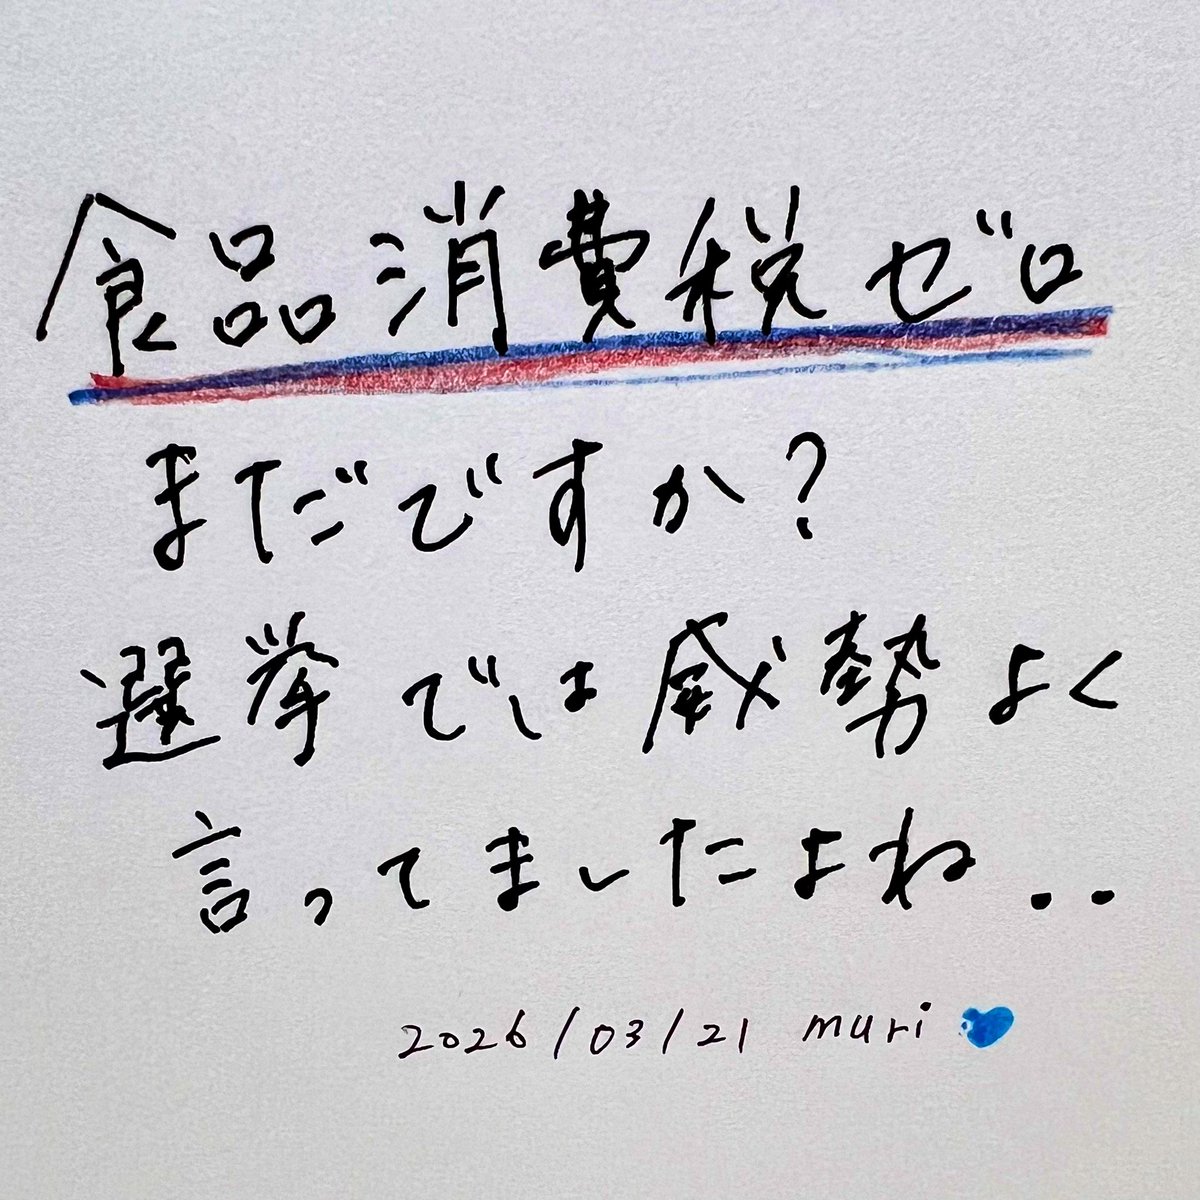 食品消費税ゼロ
まだですか?
選挙では威勢よく
言ってましたよね..
2026/03/21 muri